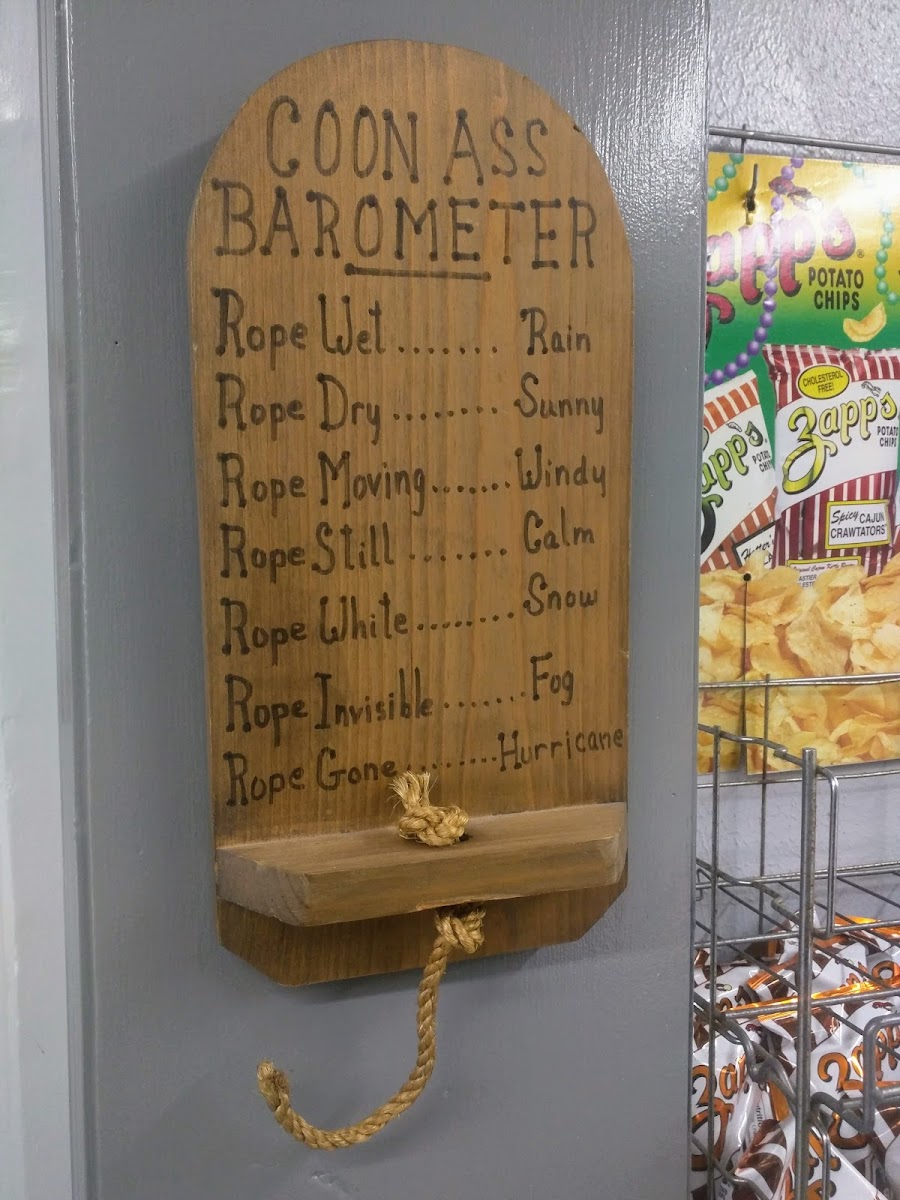 COON ASS
BAROMETER
Rope Wet....... Rain
Rope Dry........ Sunny
Rope Moving....... Windy
Rope Still ....... Calm
Rope White........ Snow
Rope Invisible ....... Fog
Rope Gone ........ Hurricane
Zapp's
POTATO
CHIPS
CHOLESTEROL
FREE!
Zapp's
POTATO
CHIPS
Spicy CAJUN
CRAWTATORS